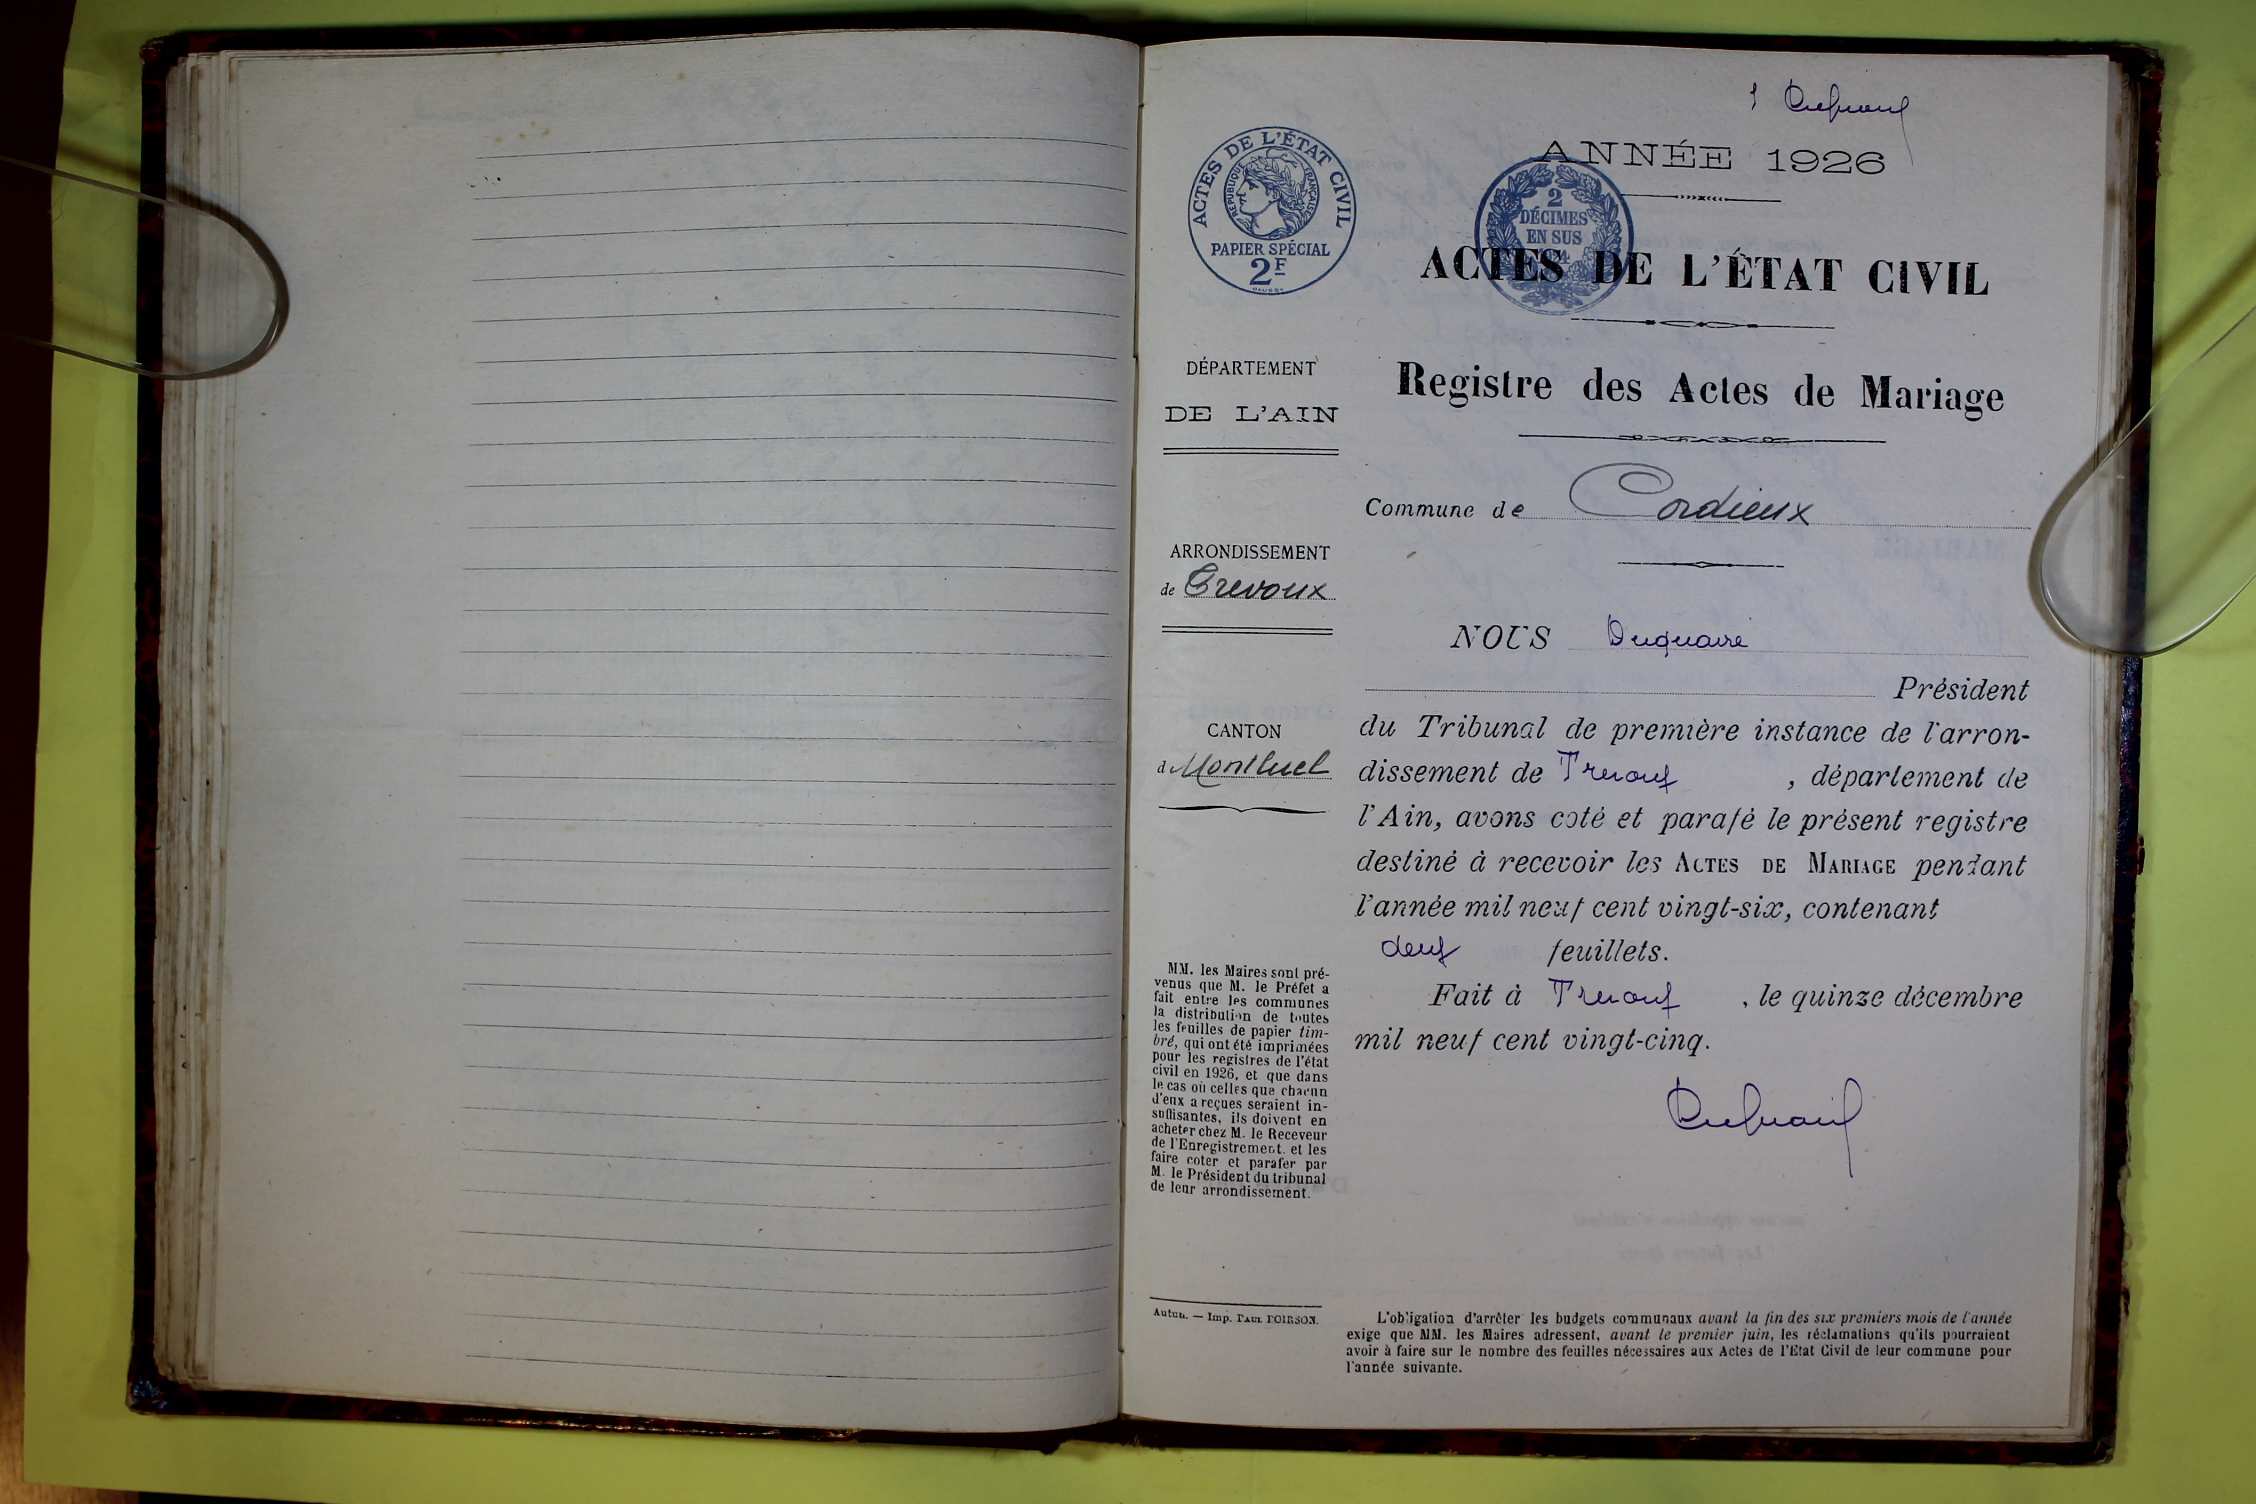 1 Duquaire
ANNÉE 1926
ACTES DE L'ÉTAT CIVIL
RÉPUBLIQUE FRANÇAISE
PAPIER SPÉCIAL
2F
2
DÉCIMES
EN SUS
ACTES DE L'ÉTAT CIVIL
Registre des Actes de Mariage
DÉPARTEMENT
DE L'AIN
Commune de Cordieux
ARRONDISSEMENT
de Trevoux
CANTON
de Montluel
NOUS Duquaire
Président
du Tribunal de première instance de l'arron-
dissement de Trevoux, département de
l'Ain, avons coté et parafé le présent registre
destiné à recevoir les ACTES DE MARIAGE pendant
l'année mil neuf cent vingt-six, contenant
deux feuillets.
Fait à Trevoux, le quinze décembre
mil neuf cent vingt-cinq.
Duquaire
MM. les Maires sont pré-
venus que M. le Préfet a
fait entre les communes
la distribution de toutes
les feuilles de papier tim-
bré, qui ont été imprimées
pour les registres de l'état
civil en 1926, et que dans
le cas où celles que chacun
d'eux a reçues seraient in-
suffisantes, ils doivent en
acheter chez M. le Receveur
de l'Enregistrement. et les
faire coter et parafer par
M. le Président du tribunal
de leur arrondissement.
Autun. — Imp. PAUL POIRSON.
L'obligation d'arrêter les budgets communaux avant la fin des six premiers mois de l'année
exige que MM. les Maires adressent, avant le premier juin, les réclamations qu'ils pourraient
avoir à faire sur le nombre des feuilles nécessaires aux Actes de l'Etat Civil de leur commune pour
l'année suivante.